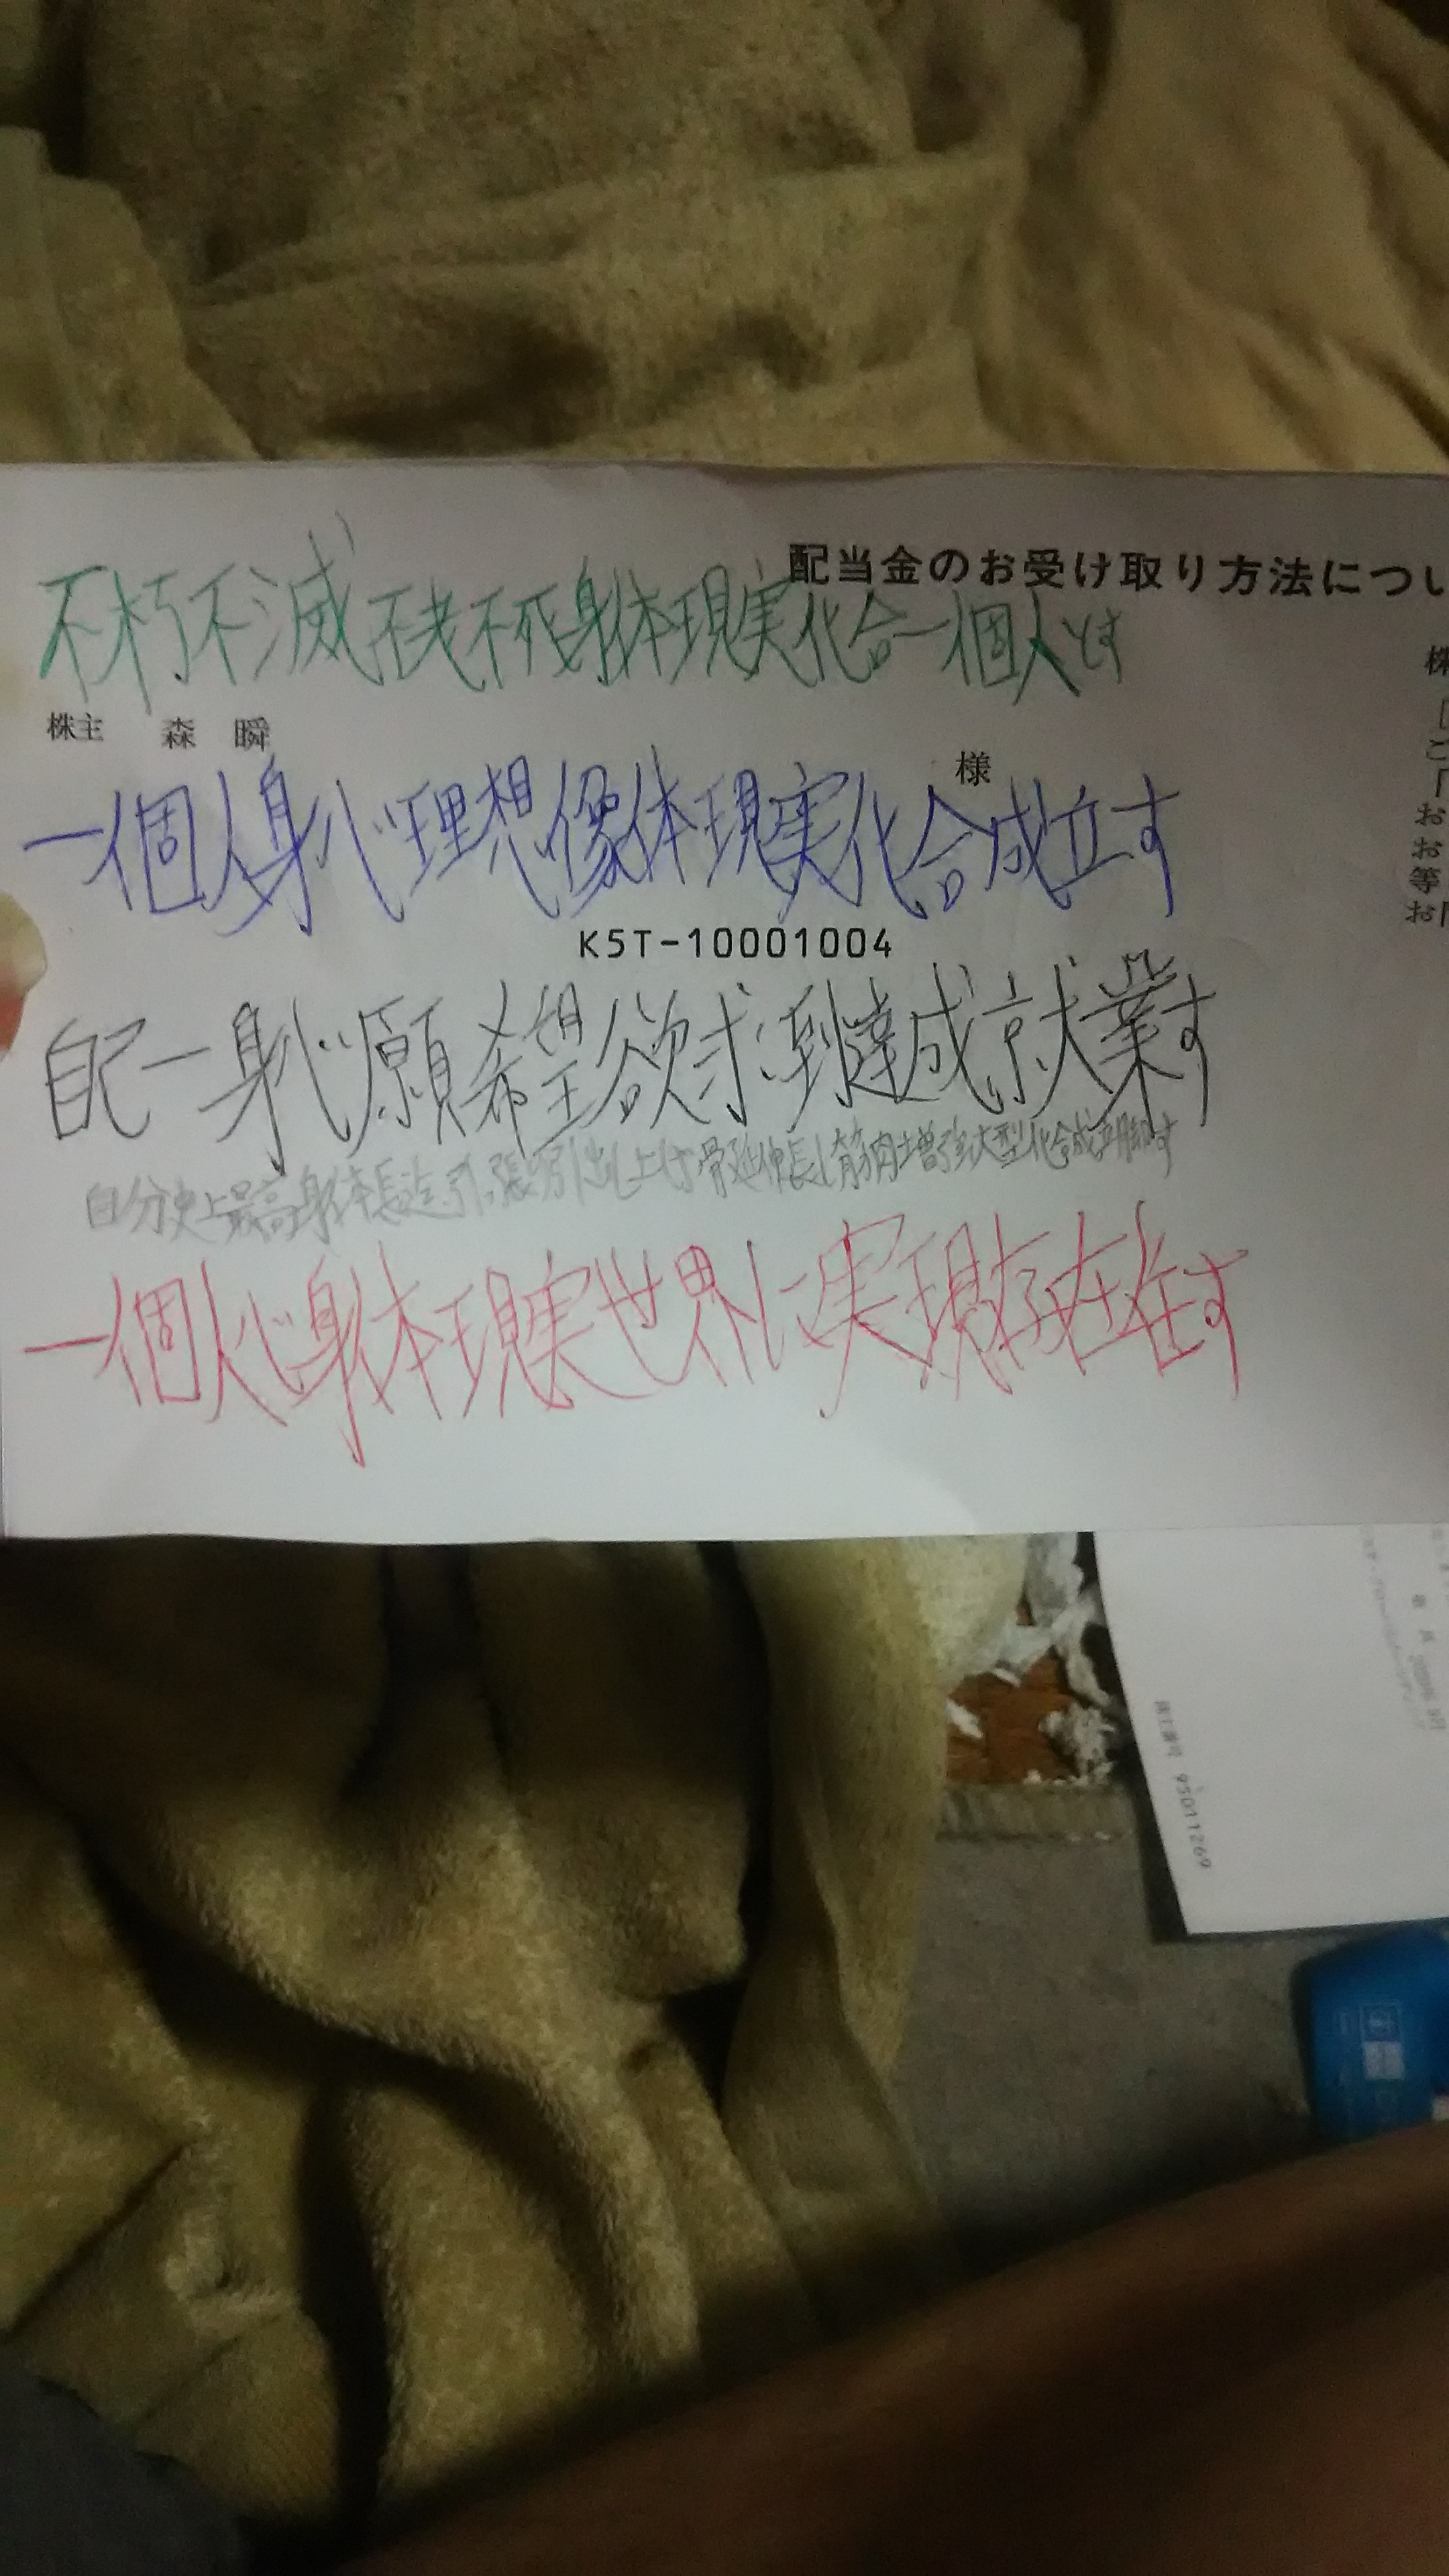 配当金のお受け取り方法につい
不朽不滅不老不死身体現実化合一個人とす
株主 森 瞬
様
一個人身心理想像体現実化合成立す
K5T-10001004
自己一身心願希望欲求到達成就業す
自分史上最高身体長迄引張引出し上げ骨延伸長し筋肉増強大型化合成立脚す
一個人心身体現実世界に実現存在住す
株
お
お
等
お
株主番号 95011269